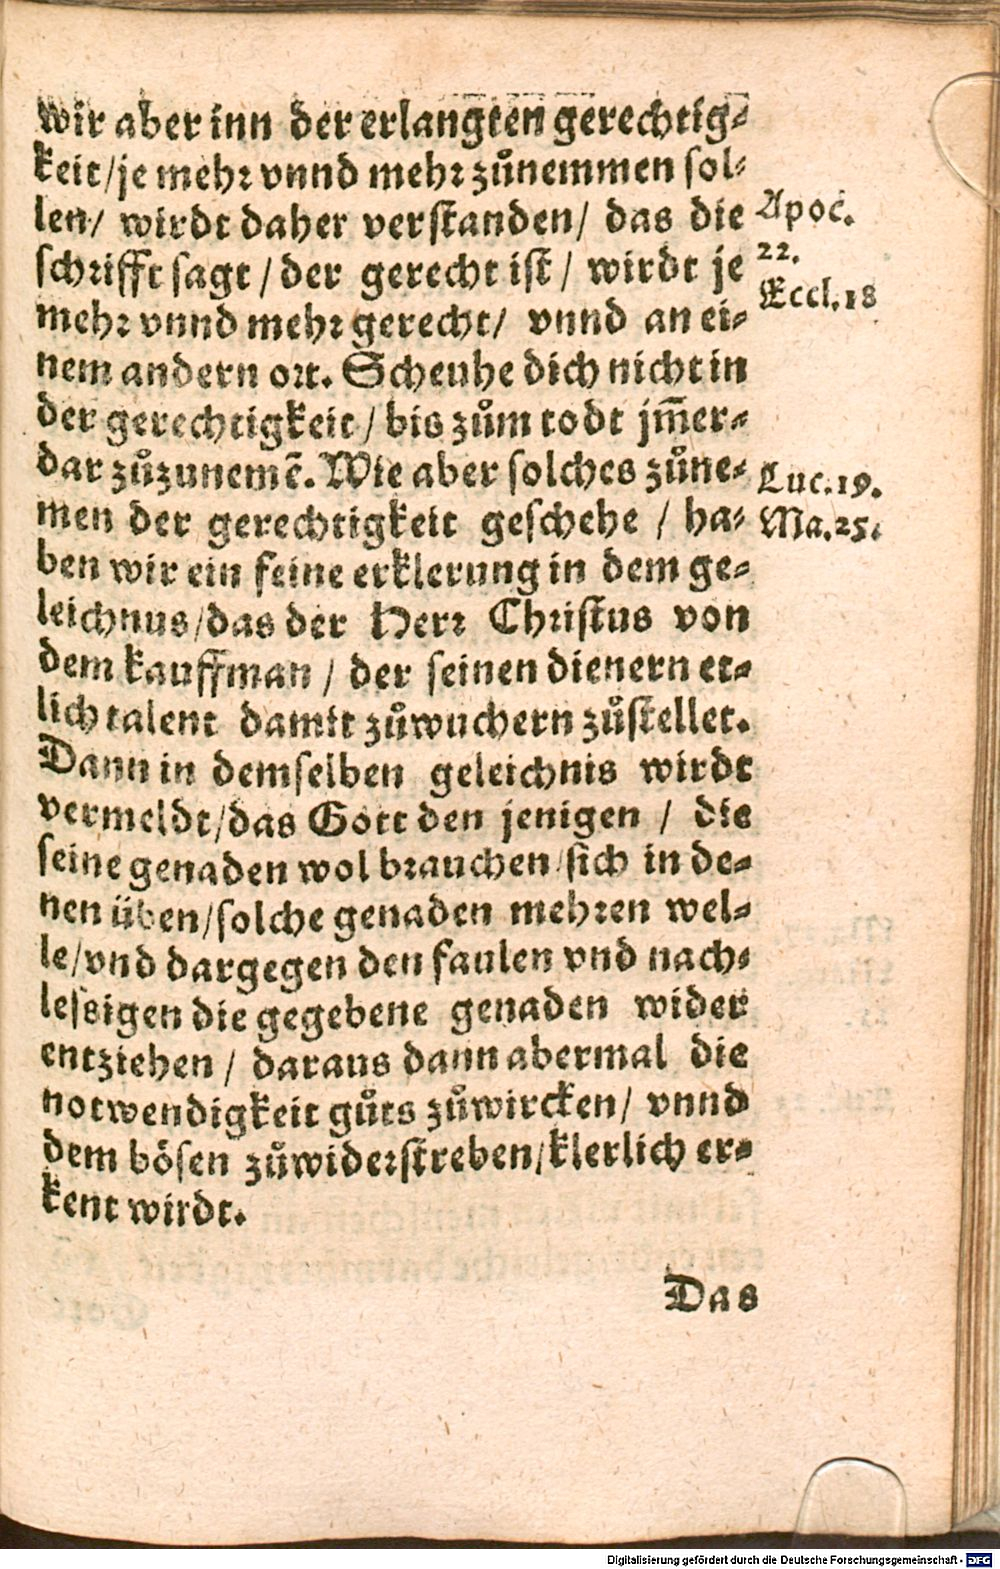 wir aber inn der erlangten gerechtig⸗
keit/je mehr vnnd mehr zůnemmen sol⸗
len/ wirdt daher verstanden/ das die
schrifft sagt/der gerecht ist/ wirdt je
mehr vnnd mehr gerecht/ vnnd an ei⸗
nem andern ort. Scheuhe dich nicht in
der gerechtigkeit/bis zům todt jm̃er⸗
dar zůzunemẽ. Wie aber solches zůne⸗
men der gerechtigkeit geschehe/ ha⸗
ben wir ein feine erklerung in dem ge⸗
leichnus/das der Herr Christus von
dem kauffman/ der seinen dienern et⸗
lich talent damit zůwuchern zůstellet.
Dann in demselben geleichnis wirdt
vermeldt/das Gott den jenigen/ die
seine genaden wol brauchen/sich in de⸗
nen üben/solche genaden mehren wel⸗
le/vnd dargegen den faulen vnd nach⸗
lessigen die gegebene genaden wider
entziehen/ daraus dann abermal die
notwendigkeit gůts zůwircken/ vnnd
dem bösen zůwiderstreben/klerlich er⸗
kent wirdt.
Das
Apoc.
22.
Eccl.18
Luc.19.
Ma.25.
Digitalisierung gefördert durch die Deutsche Forschungsgemeinschaft - DFG